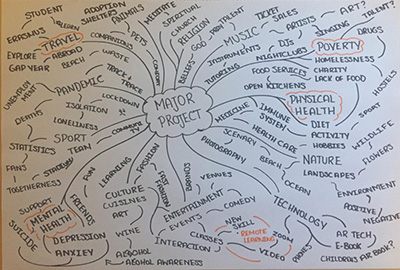 STUDENT
ADOPTION
SHELTERS
ANIMALS
MEDITATE
SPIRITUAL
CHURCH
RELIGION
GOD
BELIEFS
TALENT
TICKET
SALES
ART?
SINGING
TALENT?
ERASMUS
TRAVEL
COMPANIONS
PETS
INSTRUMENTS
MUSIC
ARTISTS
DJs
DRUGS
EXPLORE
ABROAD
WASTE
TUTORING
NIGHTCLUBS
POVERTY
GAP YEAR
BEACH
TRACK +
TRACE
FOOD SERVICES
HOMELESSNESS
CHARITY
PANDEMIC
LOCKDOWN
MAJOR
PROJECT
OPEN KITCHENS
LACK OF FOOD
UNEMPLOYMENT
ISOLATION
MEDICINE
IMMUNE
SYSTEM
PHYSICAL
HEALTH
SPORT
DEATHS
LONELINESS
HEALTH CARE
DIET
ACTIVITY
HOBBIES
HOSTELS
STATISTICS
SPORT
TEAM
SCENARY
PHOTOGRAPHY
BEACH
NATURE
WILDLIFE
FLOWERS
FANS
STADIUM
FUN
LEARNING
FASHION
FAST
FASHION
DANCE
VENUES
OCEAN
LANDSCAPES
TOGETHERNESS
CULTURE
CUISINES
ENTERTAINMENT
COMEDY
TECHNOLOGY
ENVIRONMENT
POSITIVE
NEGATIVE
SUPPORT
MENTAL
HEALTH
FRIENDS
ART
EVENTS
NEW
SKILL
SUICIDE
DEPRESSION
WINE
CLASSES
REMOTE
LEARNING
ZOOM
AR TECH
E-BOOK
ANXIEY
ALCOHOL
INTERACTION
VIDEO
ALCOHOL AWARENESS
CHILDREN'S AIR BOOK?